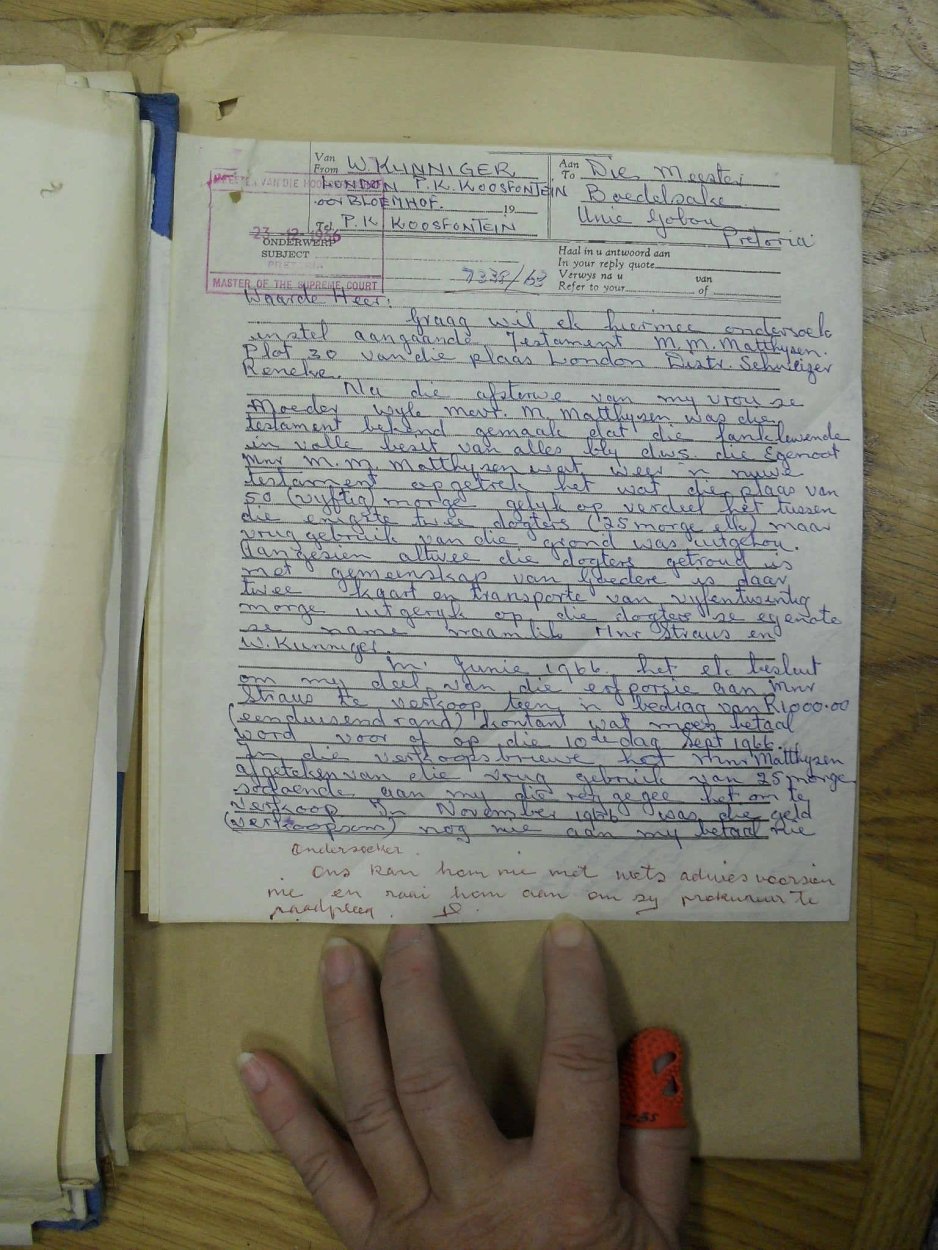 Van
From W. KUNNIGER
LONDON P.K. KOOSFONTEIN
oor BLOEMHOF. 19
Tel. P.K KOOSFONTEIN
Aan
To Die Meester
Boedelsake
Unie Gebou
Pretoria
MEESTER VAN DIE HOOGGEREGSHOF
23 -12- 1966
PRETORIA
MASTER OF THE SUPREME COURT
ONDERWERP
SUBJECT
7338/63
Haal in u antwoord aan
In your reply quote
Verwys na u van
Refer to your of
Waarde Heer:
Graag wil ek hiermee ondersoek
instel aangaande Testament M.M. Matthysen.
Plot 30 van die plaas London Distr. Schweizer
Reneke.
Na die afsterwe van my vrou se
Moeder wyle mevr. M. Matthysen was die
testament bekend gemaak dat die lanklewende
in volle besit van alles bly dws. die Egenoot
Mnr M.M. Matthysen wat weer 'n nuwe
testament opgetrek het wat die plaas van
50 (vyftig) morge gelyk op verdeel het tussen
die enigste twee dogters (25 morge elk) maar
vruggebruik van die grond was uitgehou.
Aangesien altwee die dogters getroud is
met gemeenskap van Goedere is daar
twee kaart en transporte van vyfentwintig
morge uitgeryk op die dogters se egenote
se name naamlik Mnr Straus en
W. Kunniger.
In Junie 1966 het ek besluit
om my deel van die erfporsie aan Mnr
Straus te verkoop teen 'n bedrag van R1000.00
(eenduisend rand) kontant wat moes betaal
word voor of op die 10te dag Sept 1966.
In die verkoopsbriewe het Mnr Matthysen
afgeteken van die vrug gebruik van 25 morge
sodoende aan my die reg gegee het om te
verkoop. In November 1966 was die geld
(verkoopsom) nog nie aan my betaal nie
Ondersoeker.
Ons kan hom nie met wets advies voorsien
nie en raai hom aan om sy prokureur te
raadpleeg